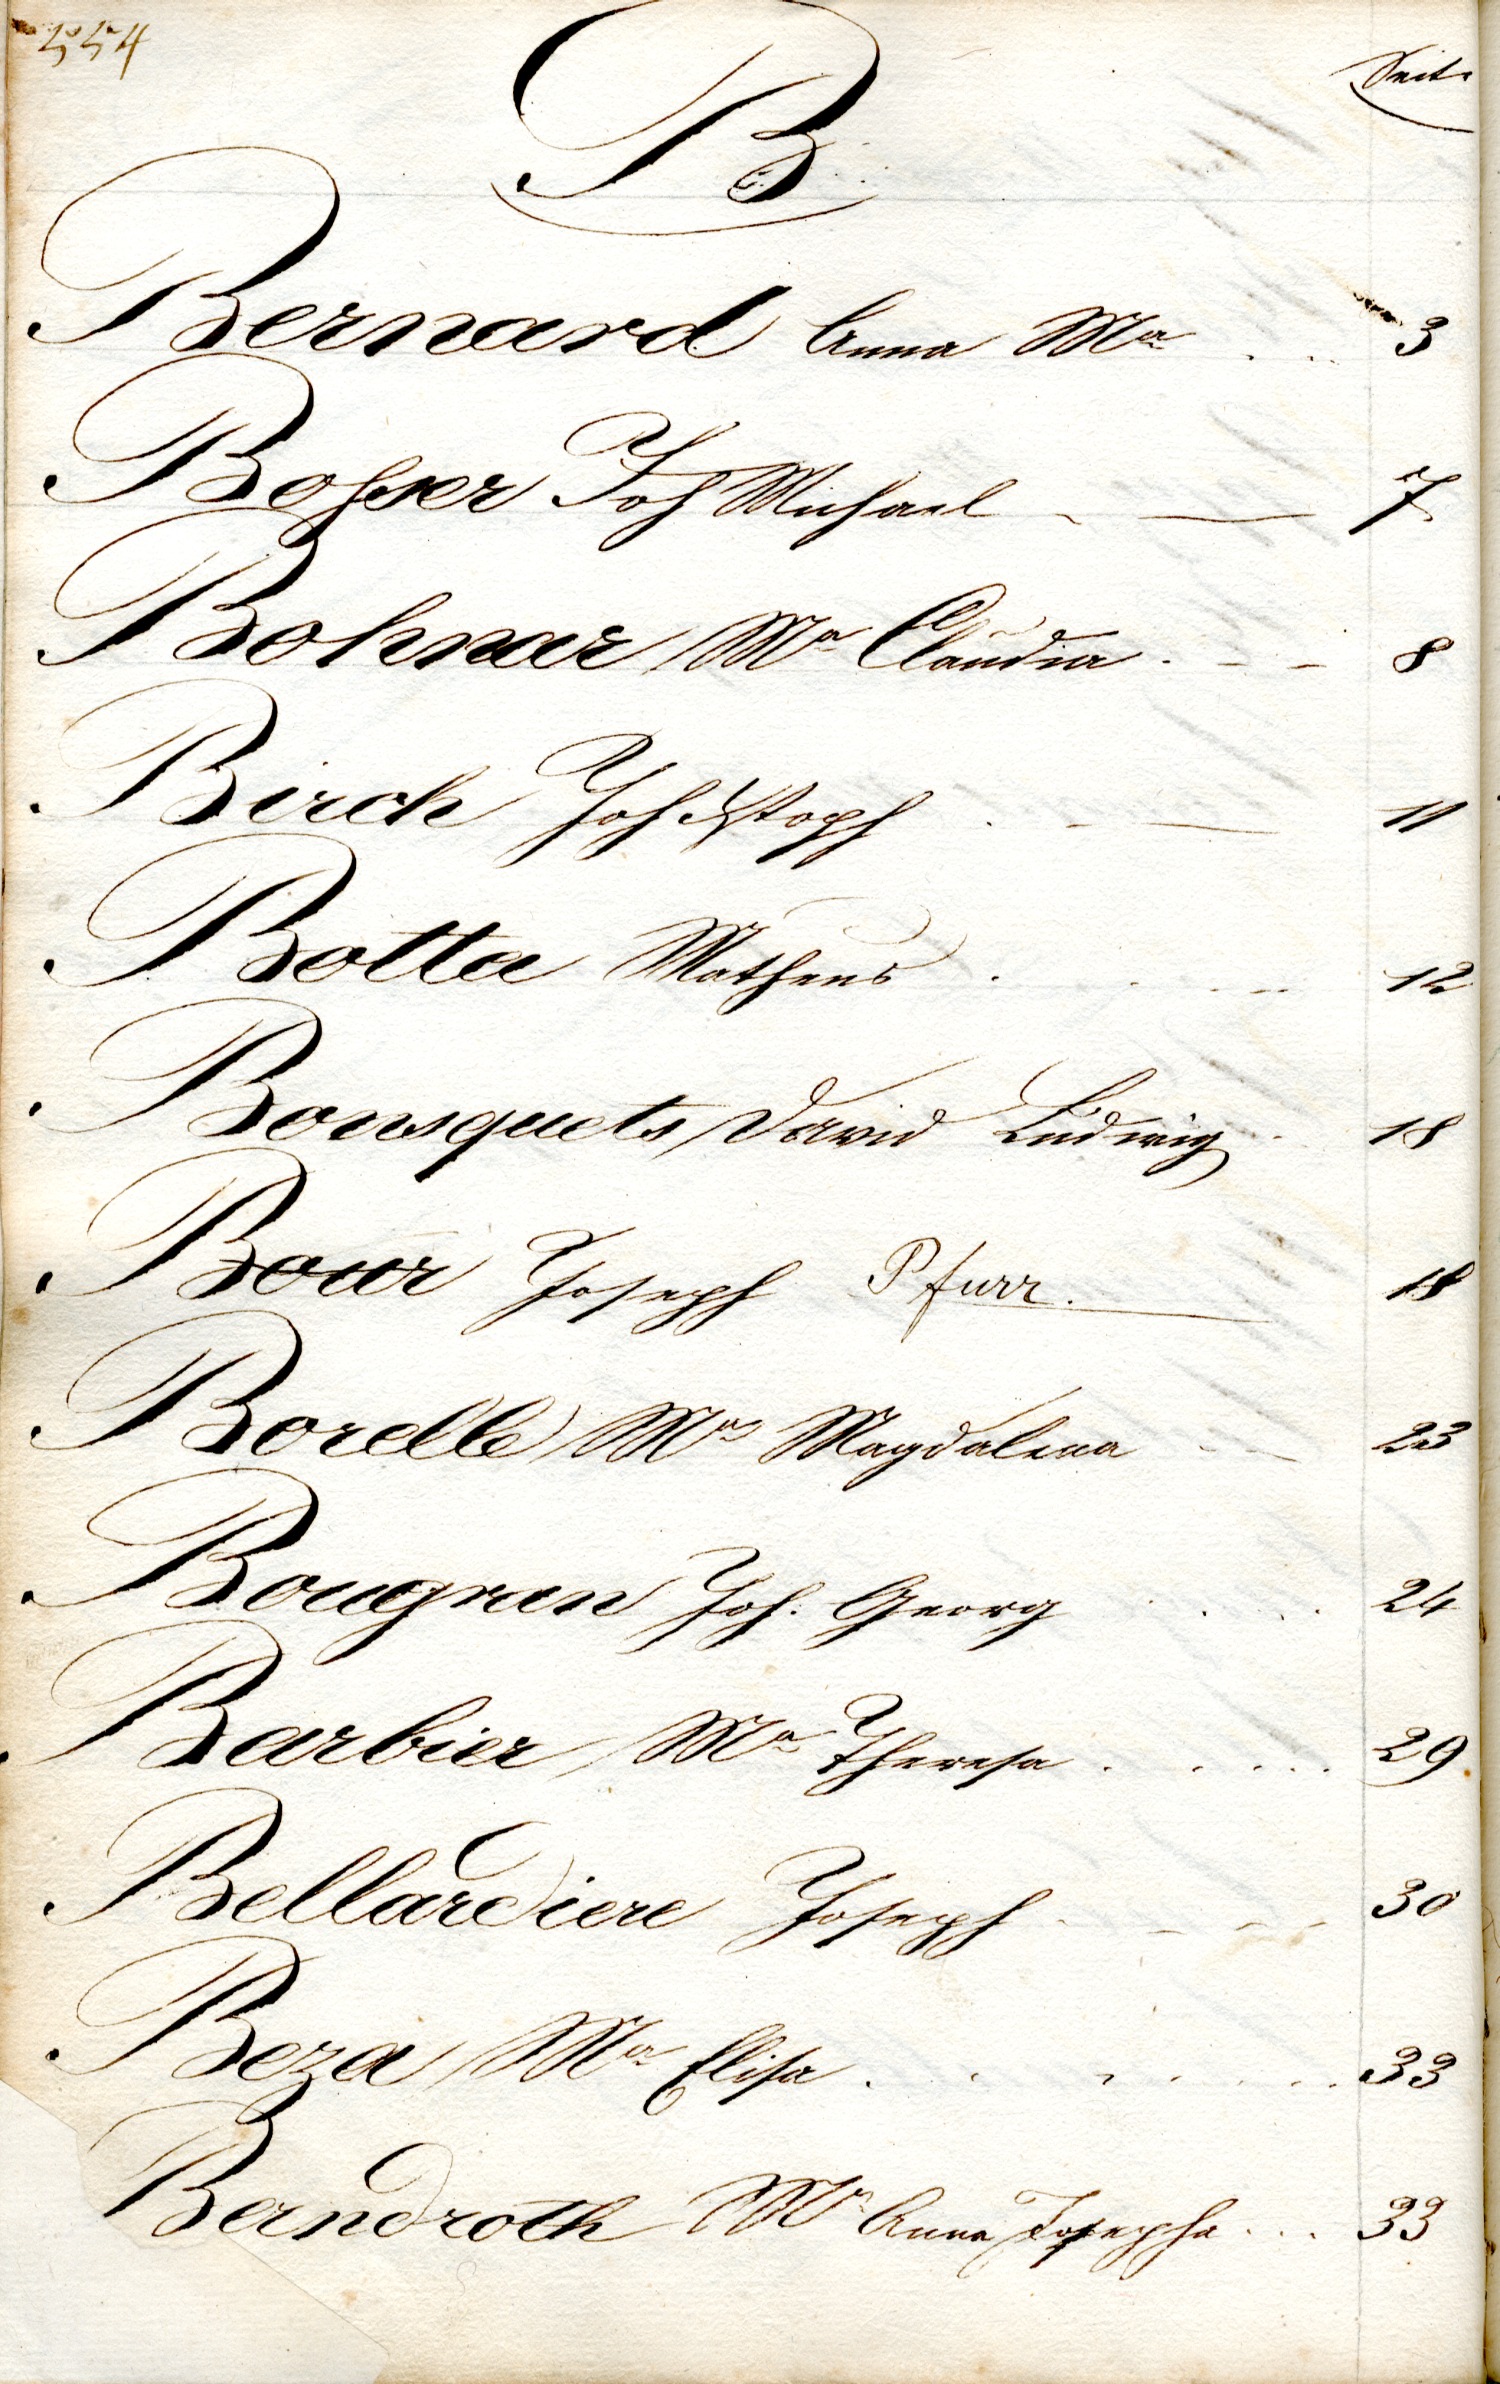 554
B
Seite
Bernard Anna Ma . . . 3
Joh Michael - — 7
Ma Claudia . - - 8
Birck Joh Xstoph . - — 11
Botta Matheus . . . . 12
Bousquets David Ludwig . 18
Bour Joseph Pfarr. — 18
Borelle Ma Magdalena - — 23
Bougran Joh. Georg . . . . 24
Barbier Ma Theresa . . . . . 29
Bellardiere Joseph - - - - 30
Beza Ma Elisa . . . . . . 33
Berndroth Ma Anna Josepha . . . 33